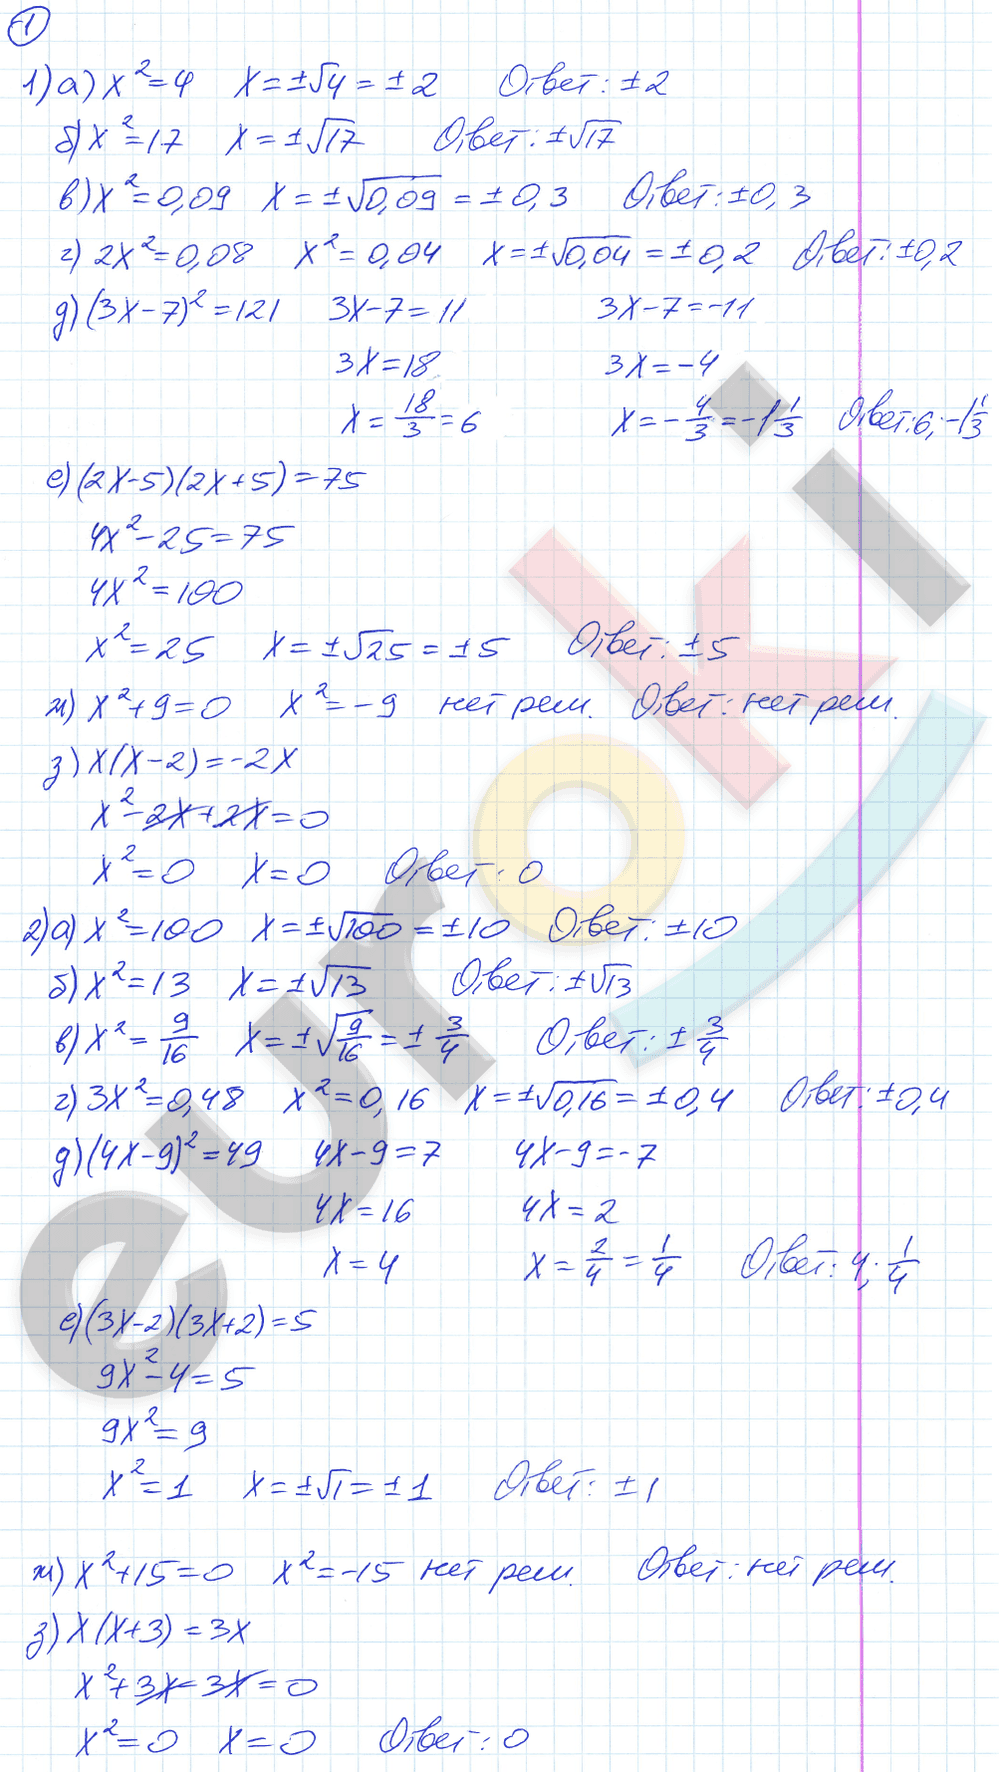 1
1) а) x² = 4 x = ±√4 = ±2 Ответ: ±2
б) x² = 17 x = ±√17 Ответ: ±√17
в) x² = 0,09 x = ±√0,09 = ±0,3 Ответ: ±0,3
г) 2x² = 0,08 x² = 0,04 x = ±√0,04 = ±0,2 Ответ: ±0,2
д) (3x-7)² = 121 3x-7 = 11 3x-7 = -11
3x = 18 3x = -4
x = 18/3 = 6 x = -4/3 = -1 1/3 Ответ: 6; -1 1/3
е) (2x-5)(2x+5) = 75
4x² - 25 = 75
4x² = 100
x² = 25 x = ±√25 = ±5 Ответ: ±5
ж) x² + 9 = 0 x² = -9 нет реш. Ответ: нет реш.
з) x(x-2) = -2x
x² - 2x + 2x = 0
x² = 0 x = 0 Ответ: 0
2) а) x² = 100 x = ±√100 = ±10 Ответ: ±10
б) x² = 13 x = ±√13 Ответ: ±√13
в) x² = 9/16 x = ±√9/16 = ± 3/4 Ответ: ± 3/4
г) 3x² = 0,48 x² = 0,16 x = ±√0,16 = ±0,4 Ответ: ±0,4
д) (4x-9)² = 49 4x-9 = 7 4x-9 = -7
4x = 16 4x = 2
x = 4 x = 2/4 = 1/4 Ответ: 4; 1/4
е) (3x-2)(3x+2) = 5
9x² - 4 = 5
9x² = 9
x² = 1 x = ±√1 = ±1 Ответ: ±1
ж) x² + 15 = 0 x² = -15 нет реш. Ответ: нет реш.
з) x(x+3) = 3x
x² + 3x - 3x = 0
x² = 0 x = 0 Ответ: 0
euroki